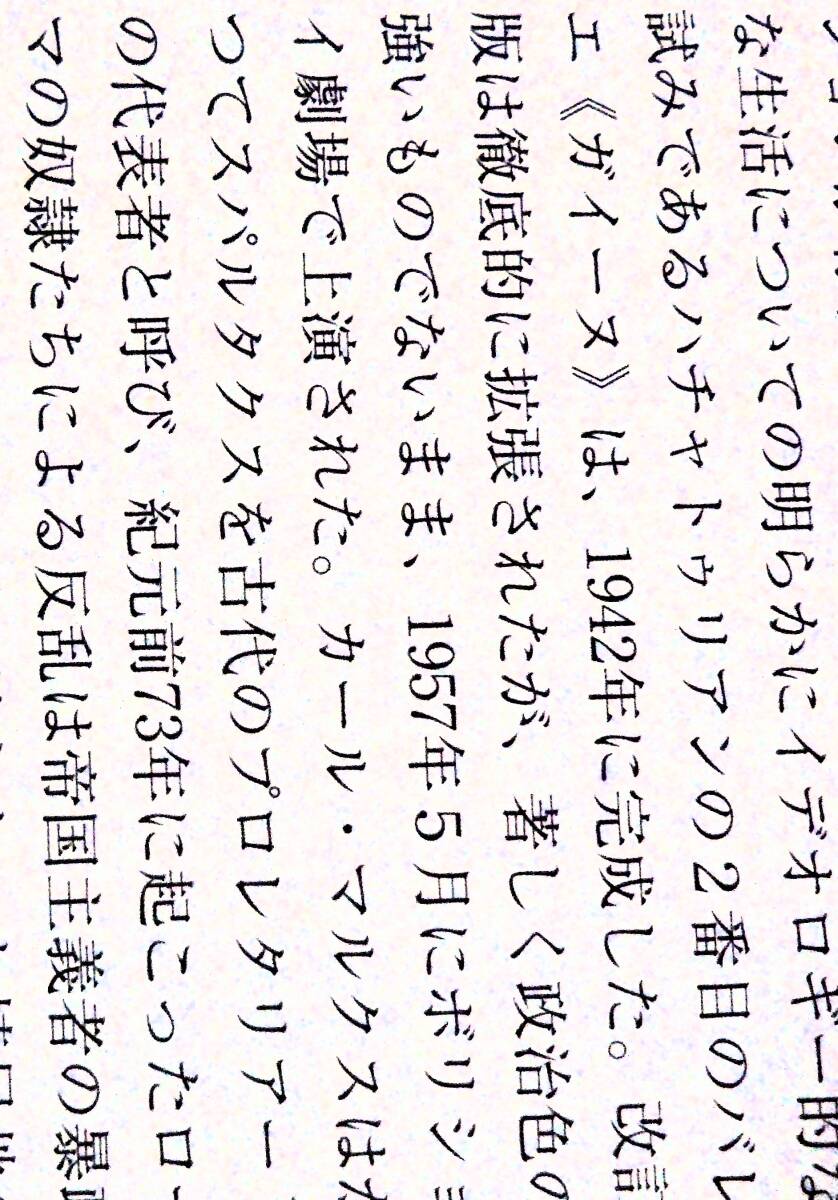 な生活についての明らかにイデオロギー的な
試みであるハチャトゥリアンの2番目のバレ
エ《ガイーヌ》は、1942年に完成した。改訂
版は徹底的に拡張されたが、著しく政治色の
強いものでないまま、1957年5月にボリショ
イ劇場で上演された。カール・マルクスはか
つてスパルタクスを古代のプロレタリアート
の代表者と呼び、紀元前73年に起こったロー
マの奴隷たちによる反乱は帝国主義者の暴